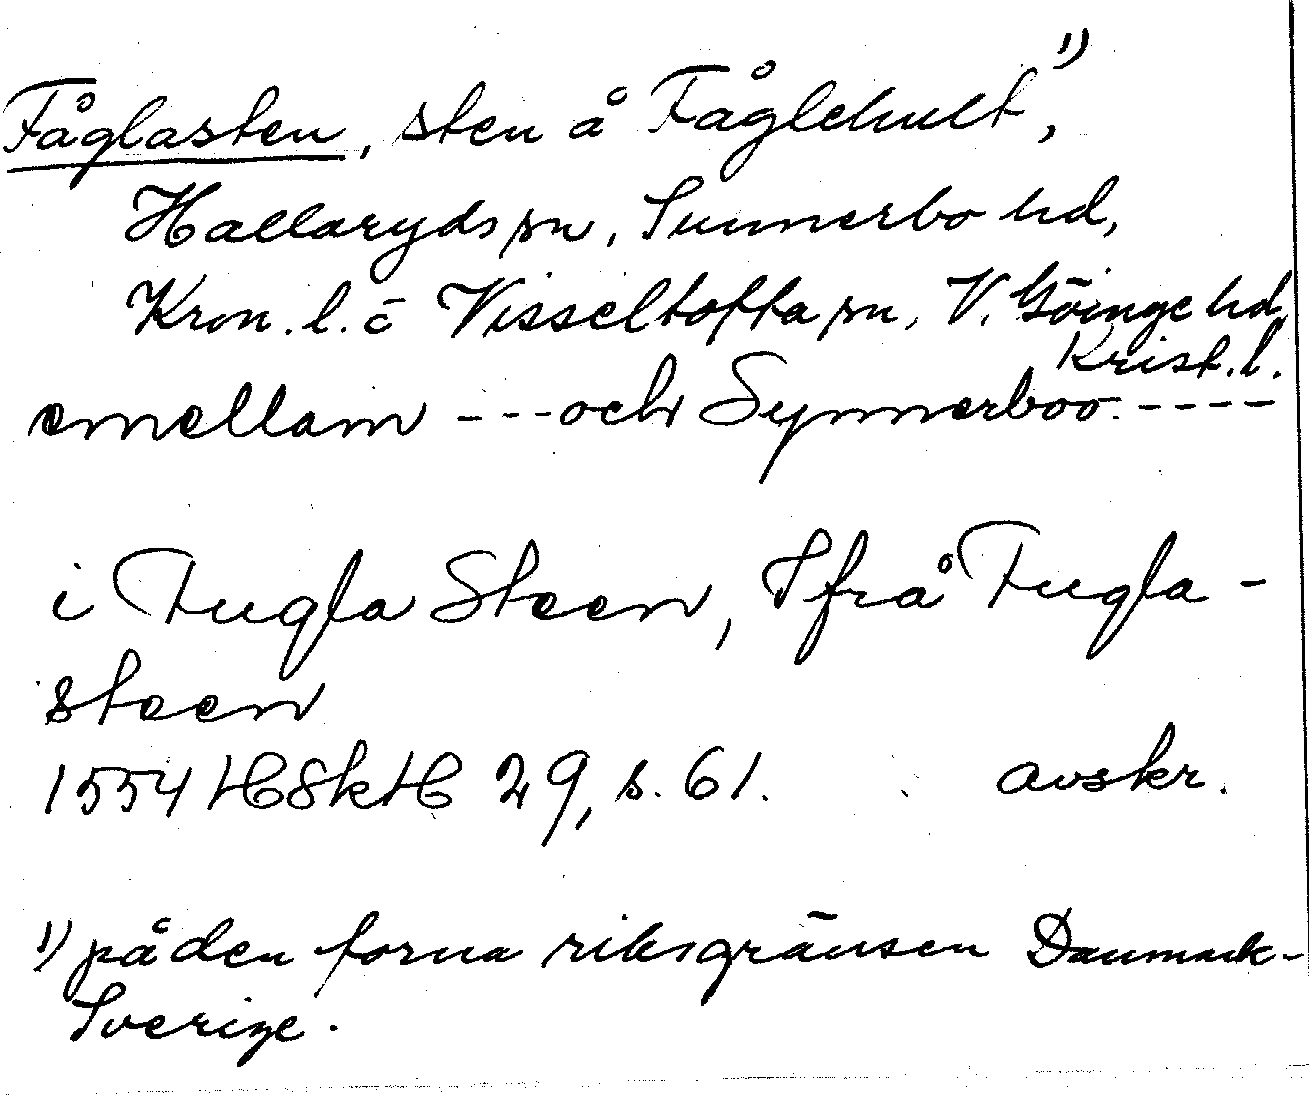 Fåglasten, sten å Fåglehult¹⁾,
Hallaryds sn, Sunnerbo hd,
Kron. l. ō Visseltofta sn, V. Göinge hd,
Krist. l.
emellam --- och Synnerboo. ----
i Fugla Steen, Ifrå Fugla-
steen
1554 HSkH 29, s. 61. avskr.
1) på den forna riksgränsen Danmark-
Sverige.